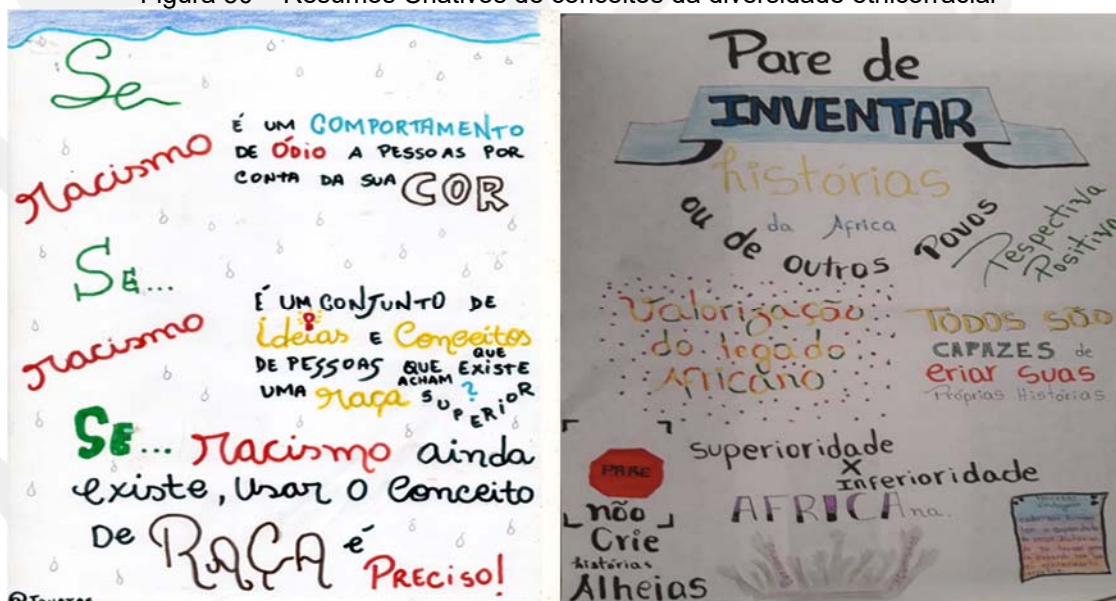 Se
racismo
É UM COMPORTAMENTO
DE ÓDIO A PESSOAS POR
CONTA DA SUA COR
SE...
racismo
É UM CONJUNTO DE
ideias E Conceitos
DE PESSOAS QUE ACHAM QUE EXISTE
UMA raça SUPERIOR
?
SE... racismo ainda
existe, usar o conceito
DE RAÇA é
PRECISO!
Pare de
INVENTAR
histórias
da Africa
ou de outros Povos
Perspectiva
Positiva
Valorização
do legado
Africano
TODOS SÃO
CAPAZES de
criar suas
Próprias Histórias
PARE
não
Crie
histórias
Alheias
superioridade
X
Inferioridade
AFRICAna.